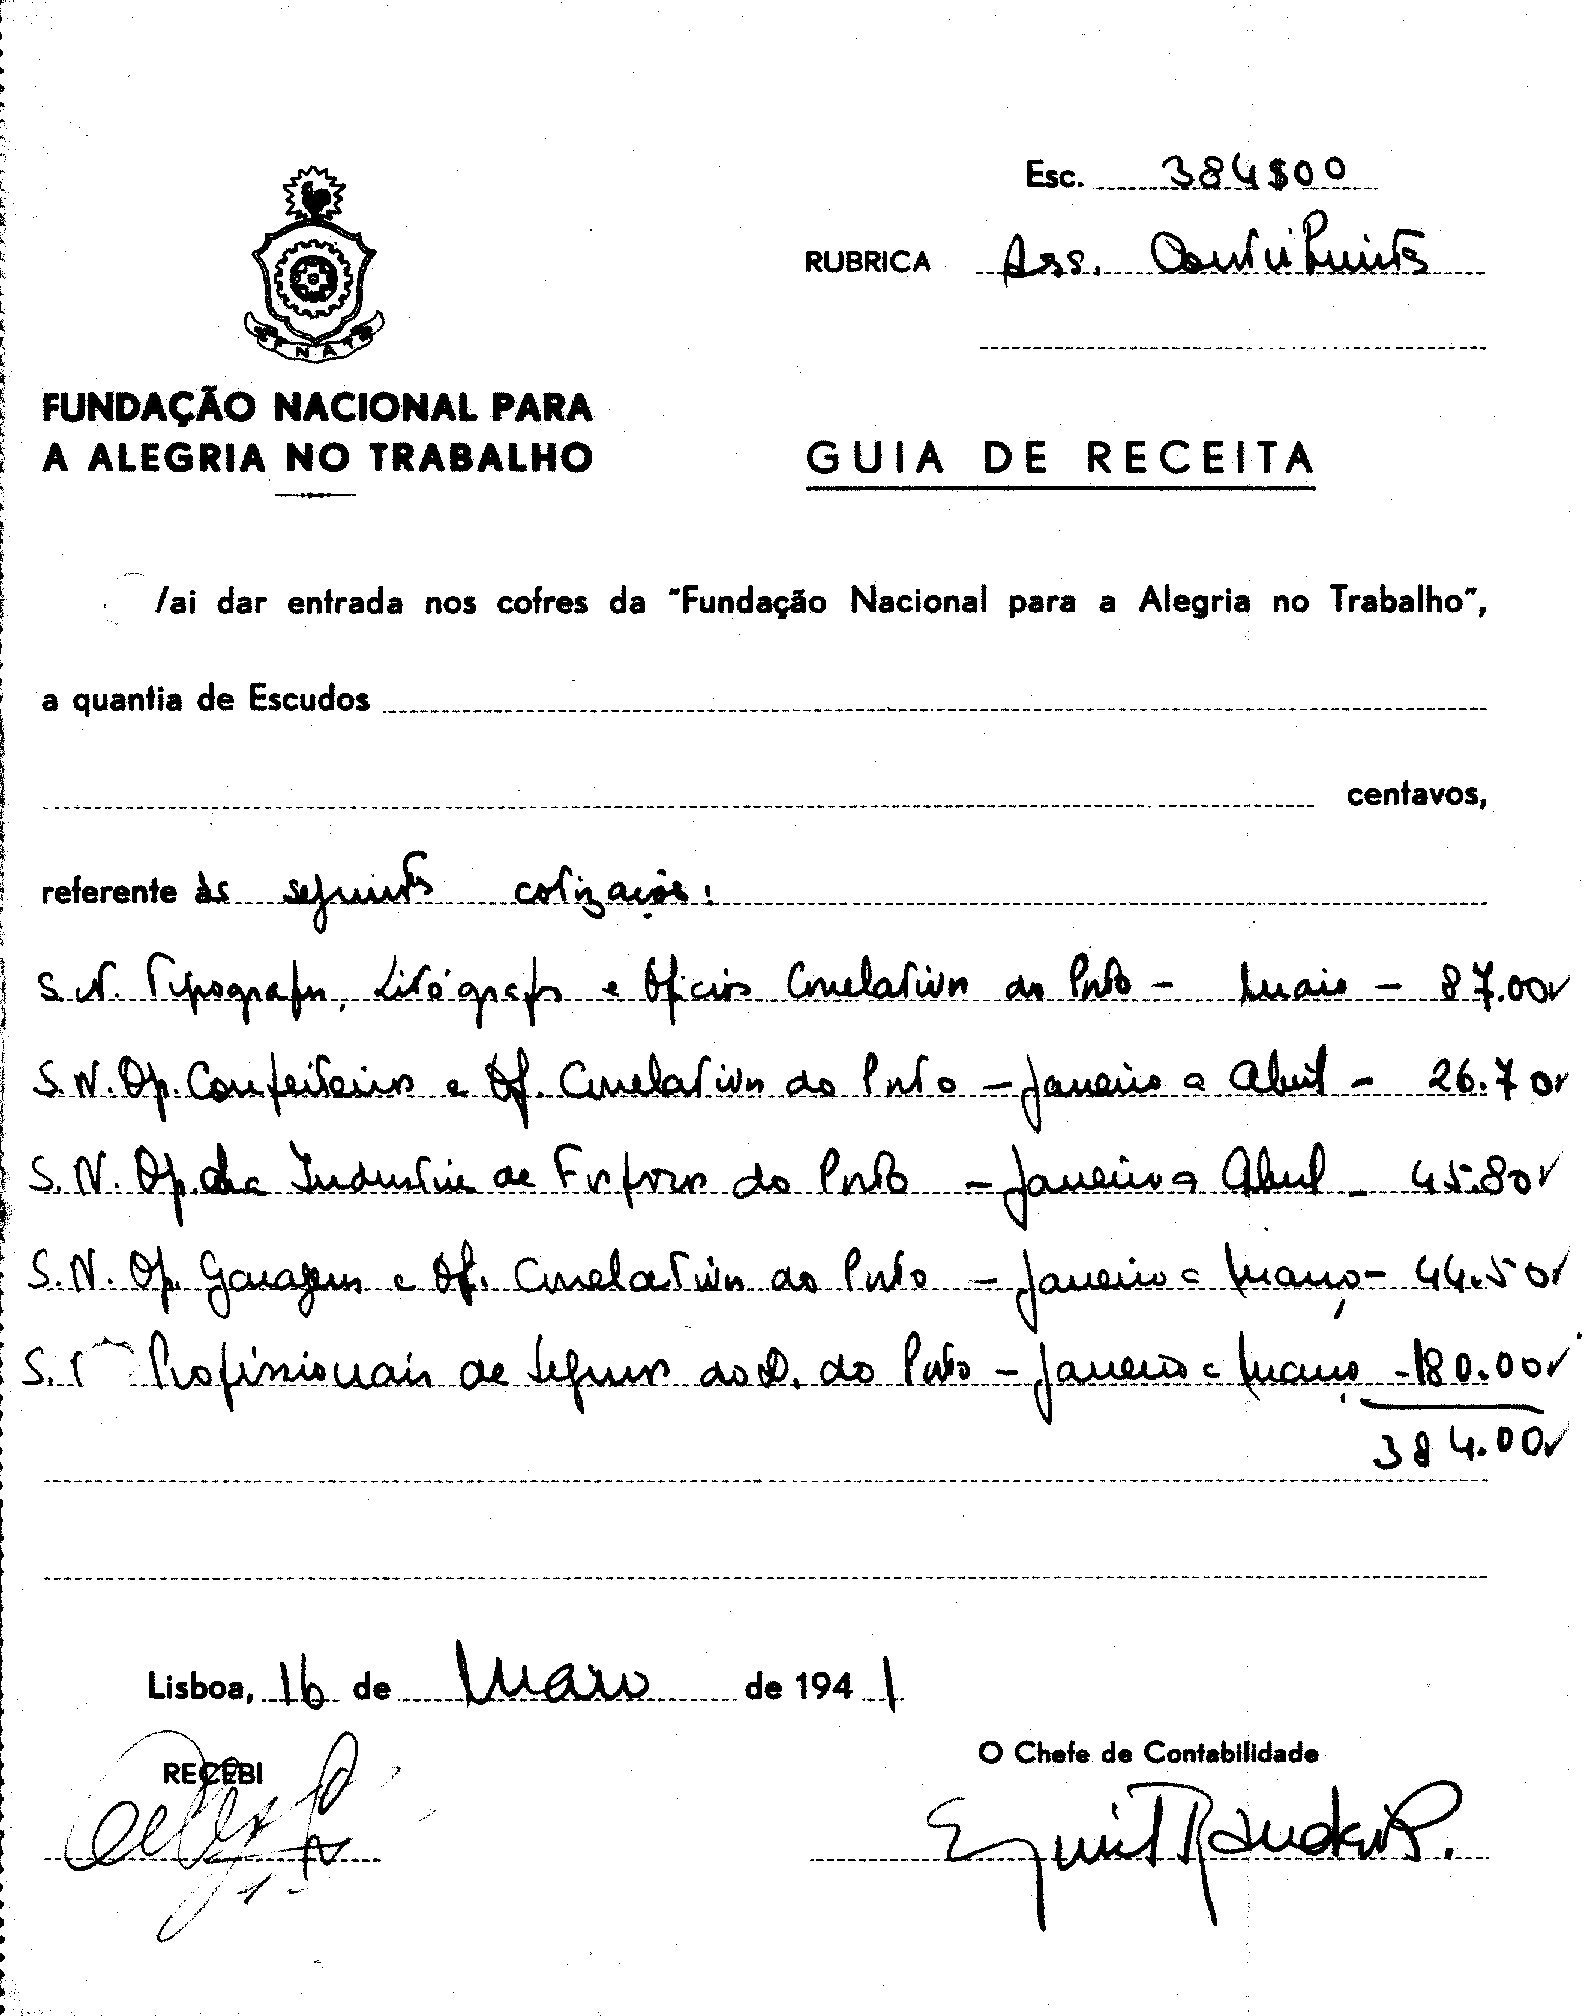 Esc. 384$00
RUBRICA Ass. Contribuintes
FNAT
FUNDAÇÃO NACIONAL PARA
A ALEGRIA NO TRABALHO
GUIA DE RECEITA
Vai dar entrada nos cofres da "Fundação Nacional para a Alegria no Trabalho",
a quantia de Escudos
centavos,
referente às seguintes cotizações:
S.N. Tipografos, Litógrafos e Ofícios Correlativos do Porto - Maio - 87.00
S.N. Op. Confeiteiros e Of. Correlativos do Porto - Janeiro a Abril - 26.70
S.N. Op. da Industria de Fosforos do Porto - Janeiro a Abril - 45.80
S.N. Op. Garagens e Of. Correlativos do Porto - Janeiro a Março - 44.50
S. Profissionais de Seguros do D. do Porto - Janeiro a Março - 180.00
384.00
Lisboa, 16 de Maio de 1941
RECEBI
O Chefe de Contabilidade